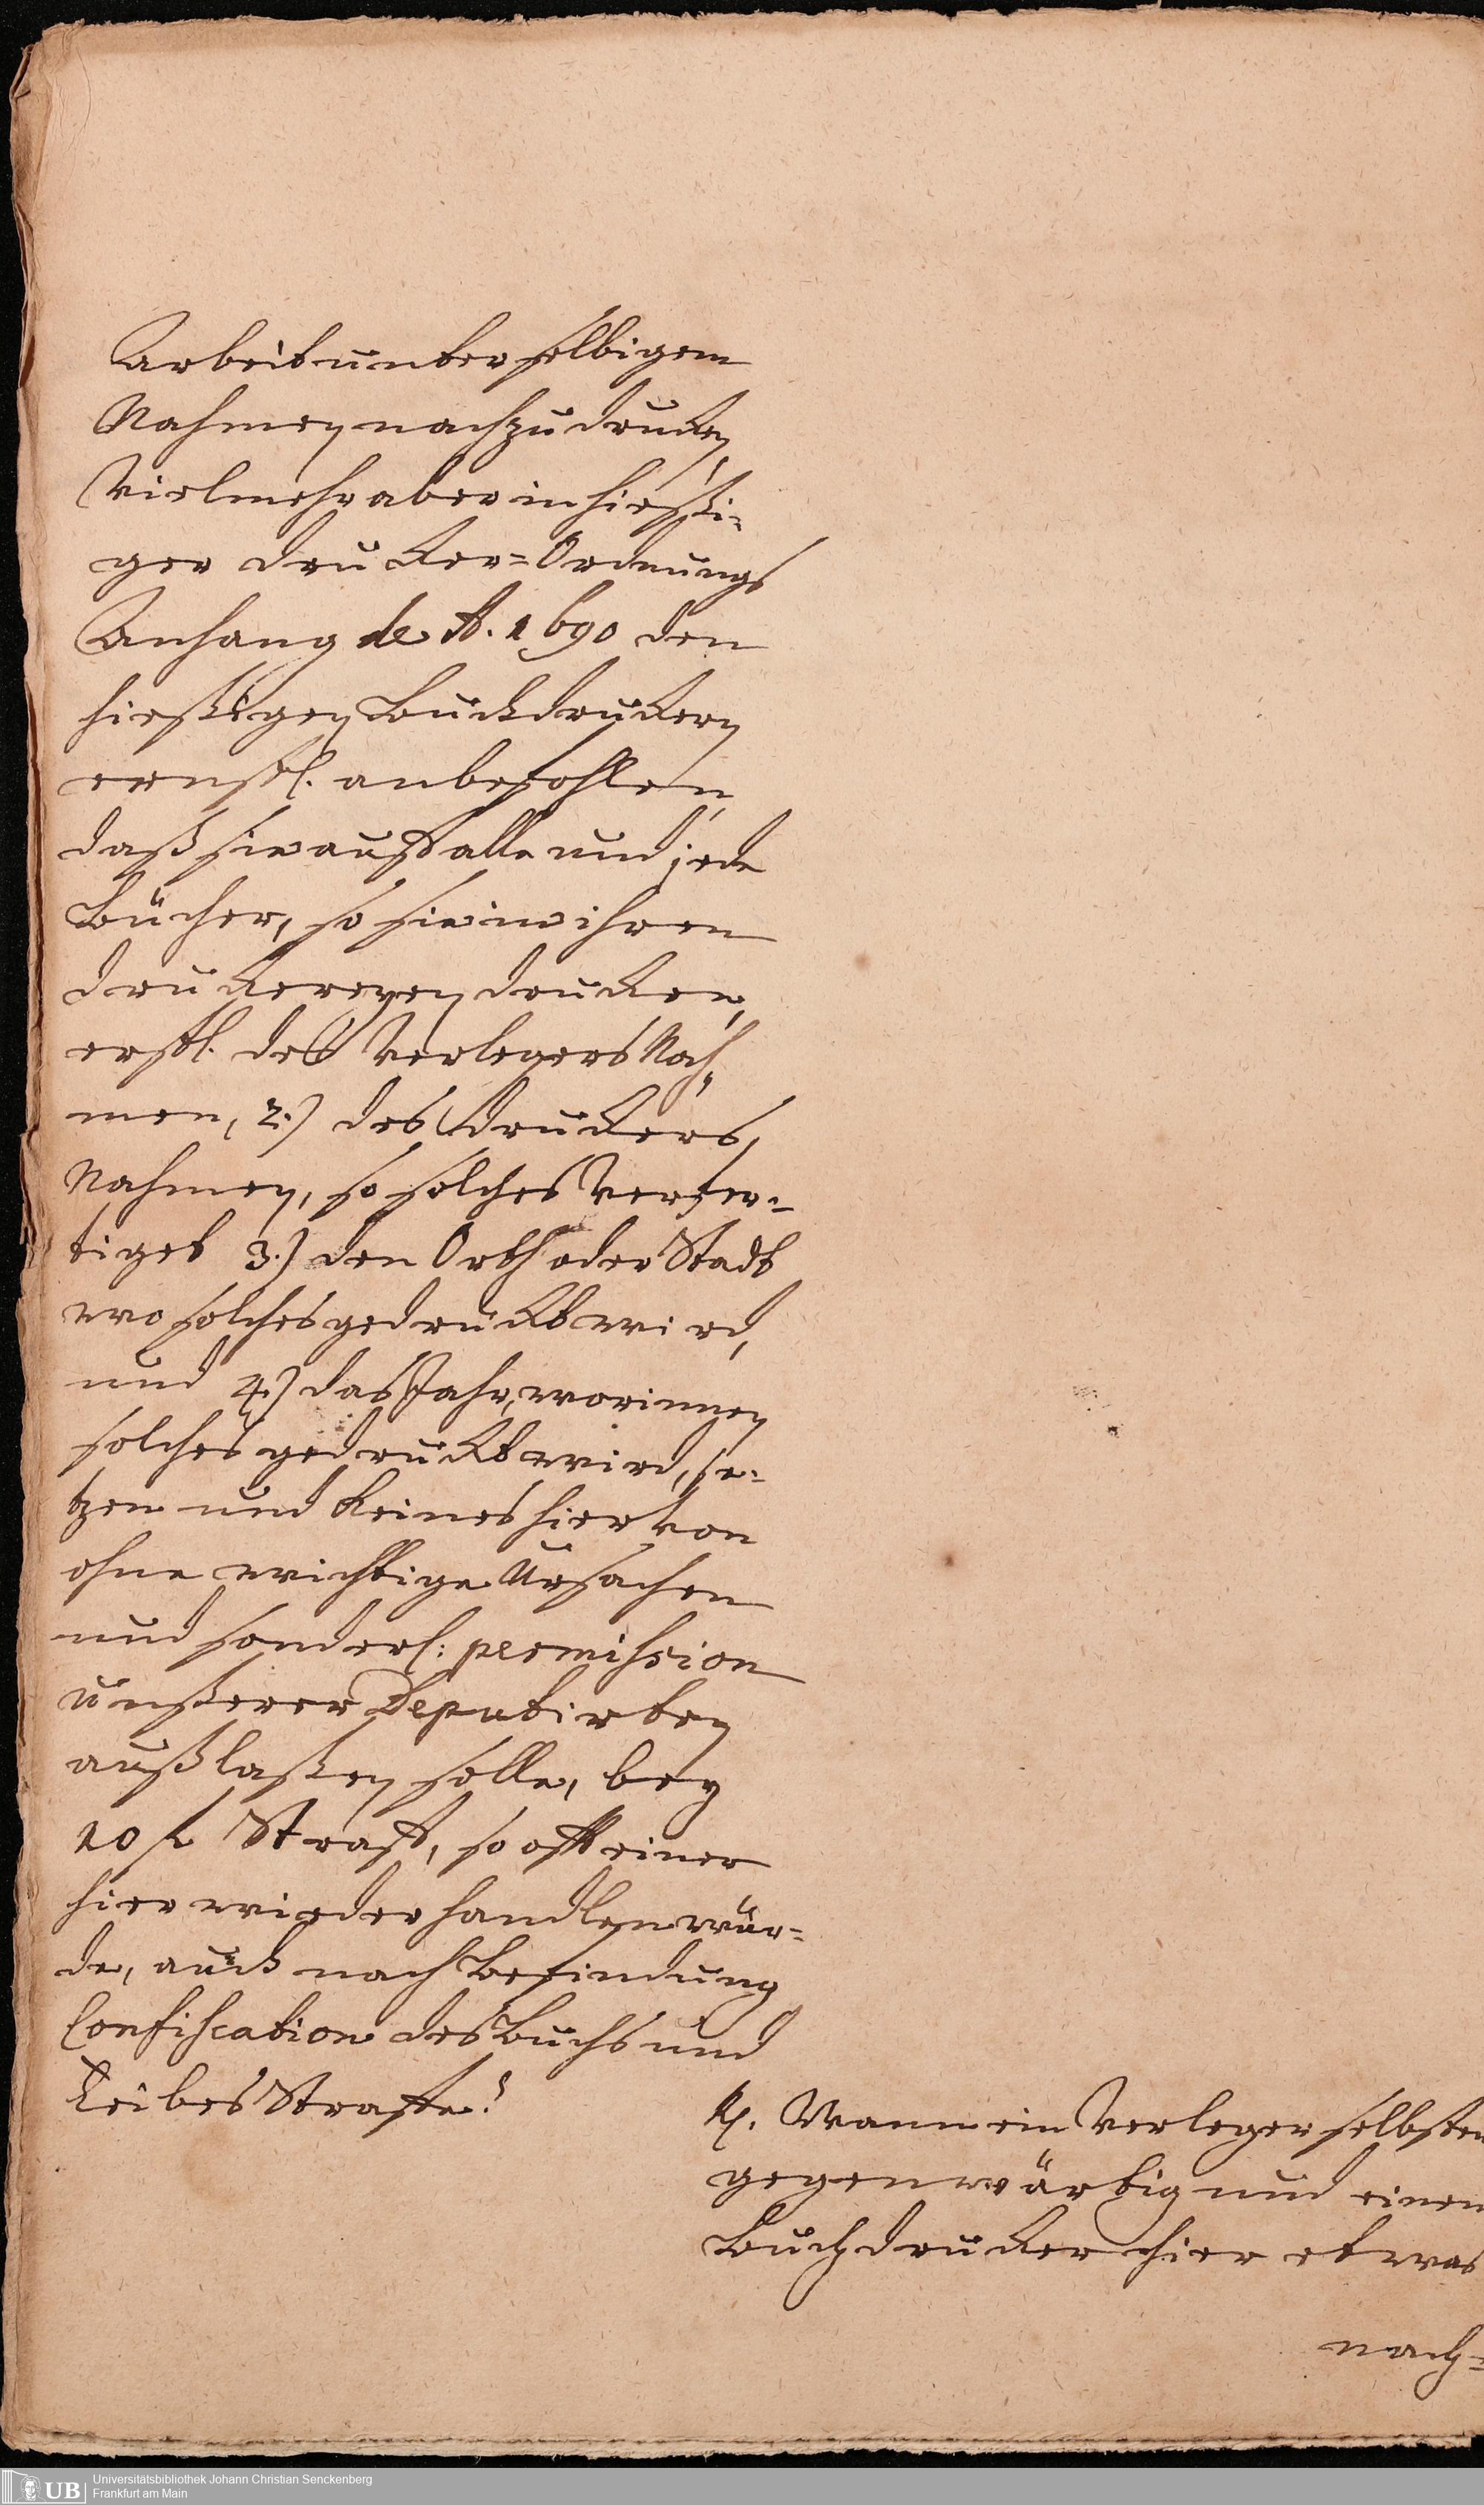 Arbeit unter selbigem
Nahmen nachzudrucken,
Vielmehr aber in hießi-
ger drucker=Ordnungs
Anhang de A. 1690 den
hießigen Buchdruckern
ernstl. anbefohlen,
daß sie auff alle und jede
Bücher, so sie in ihren
druckereyen drucken,
erstl. deß Verlegers Nah-
men, 2.) des druckers
Nahmen, so solches verfer-
tiget 3.) den Orth oder Stadt
wo solches gedruckt wird,
und 4.) das Jahr, worinnen
solches gedruckt wird, se-
tzen und keines hiervon
ohne wichtige Ursachen
und sonderl: permission
unßerer Deputirten
außlaßen solle, bey
20 fl Straff, so offt einer
hier wieder handlen wür-
de, auch nach Befindung
Confiscation des Buchs und
Leibes Straffe.
Wann ein Verleger selbsten
gegenwärtig und einen
Buchdrucker hier etwas
nach-
UB
Universitätsbibliothek Johann Christian Senckenberg
Frankfurt am Main